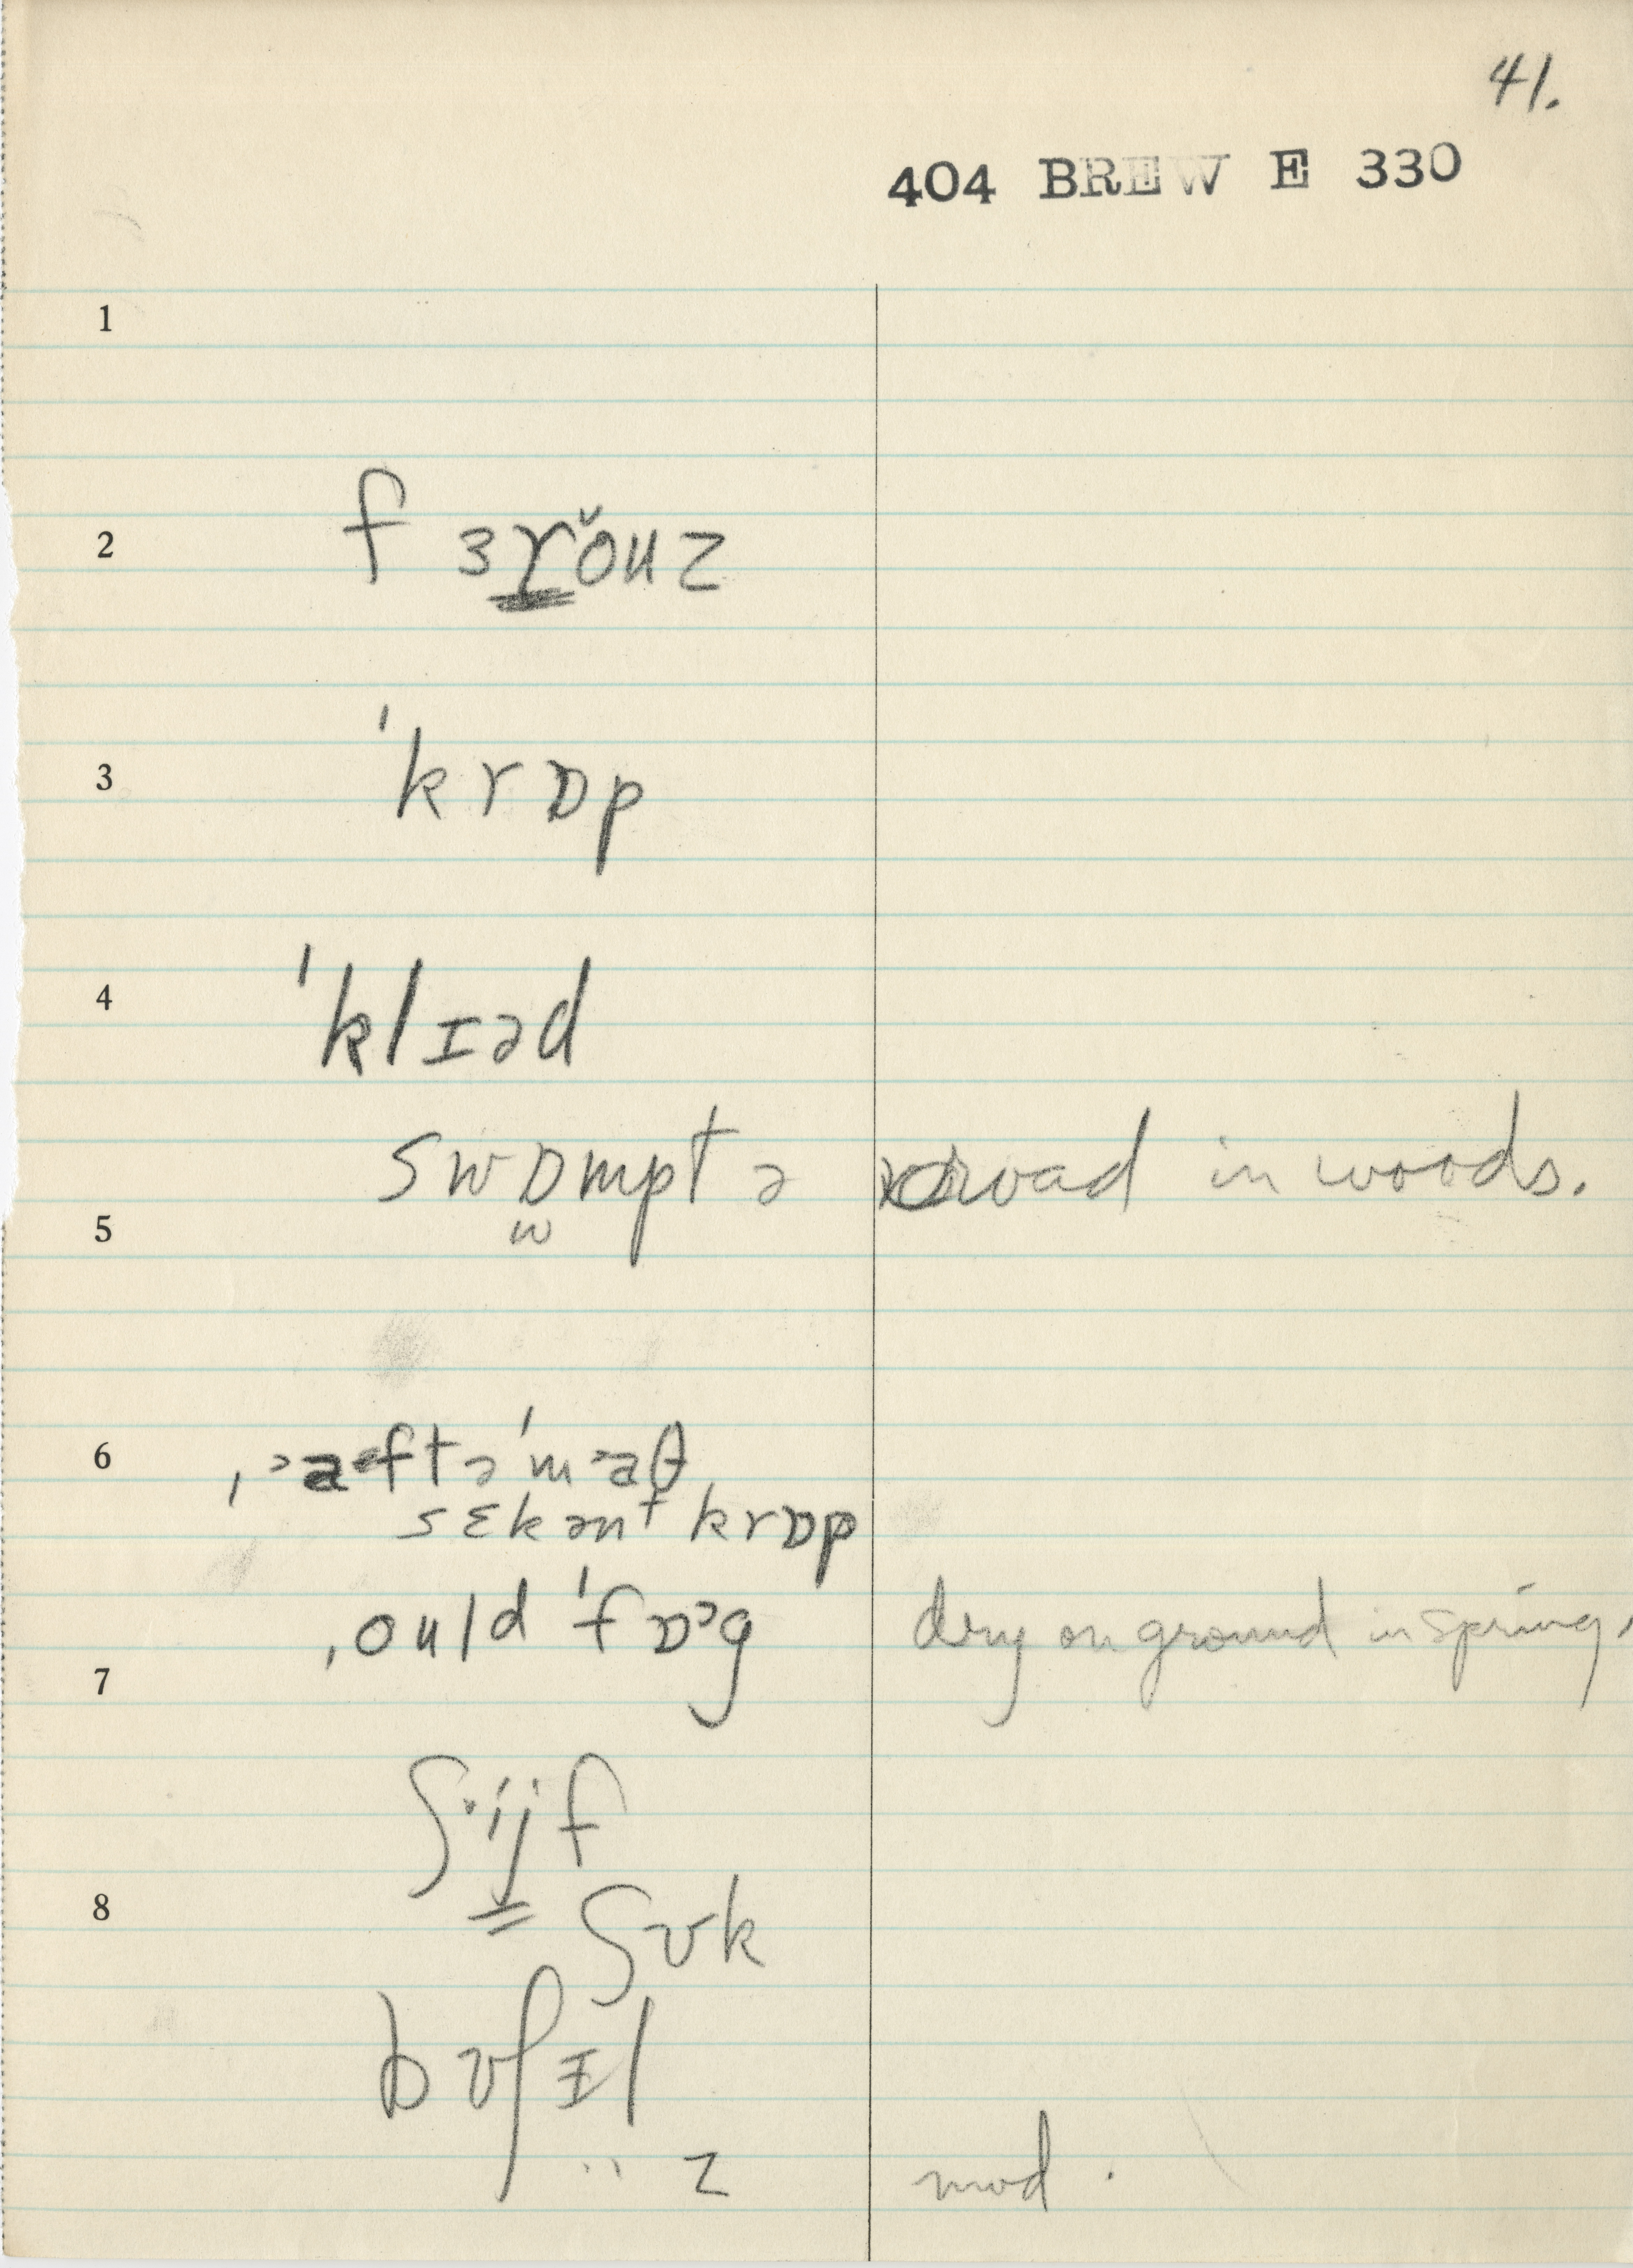 41.
404 BREW E 330
1
2 fɜrŏuz
3 ˈkrɒp
4 ˈklɪəd
swɒmptə road in woods.
w
5
6 ˌaftəˈmaθ
sɛkənt krɒp
ˌould ˈfɒɔg dry on ground in spring.
7
ʃijf
8 ʃʊk
bʊʃɪl
¨ z mod.